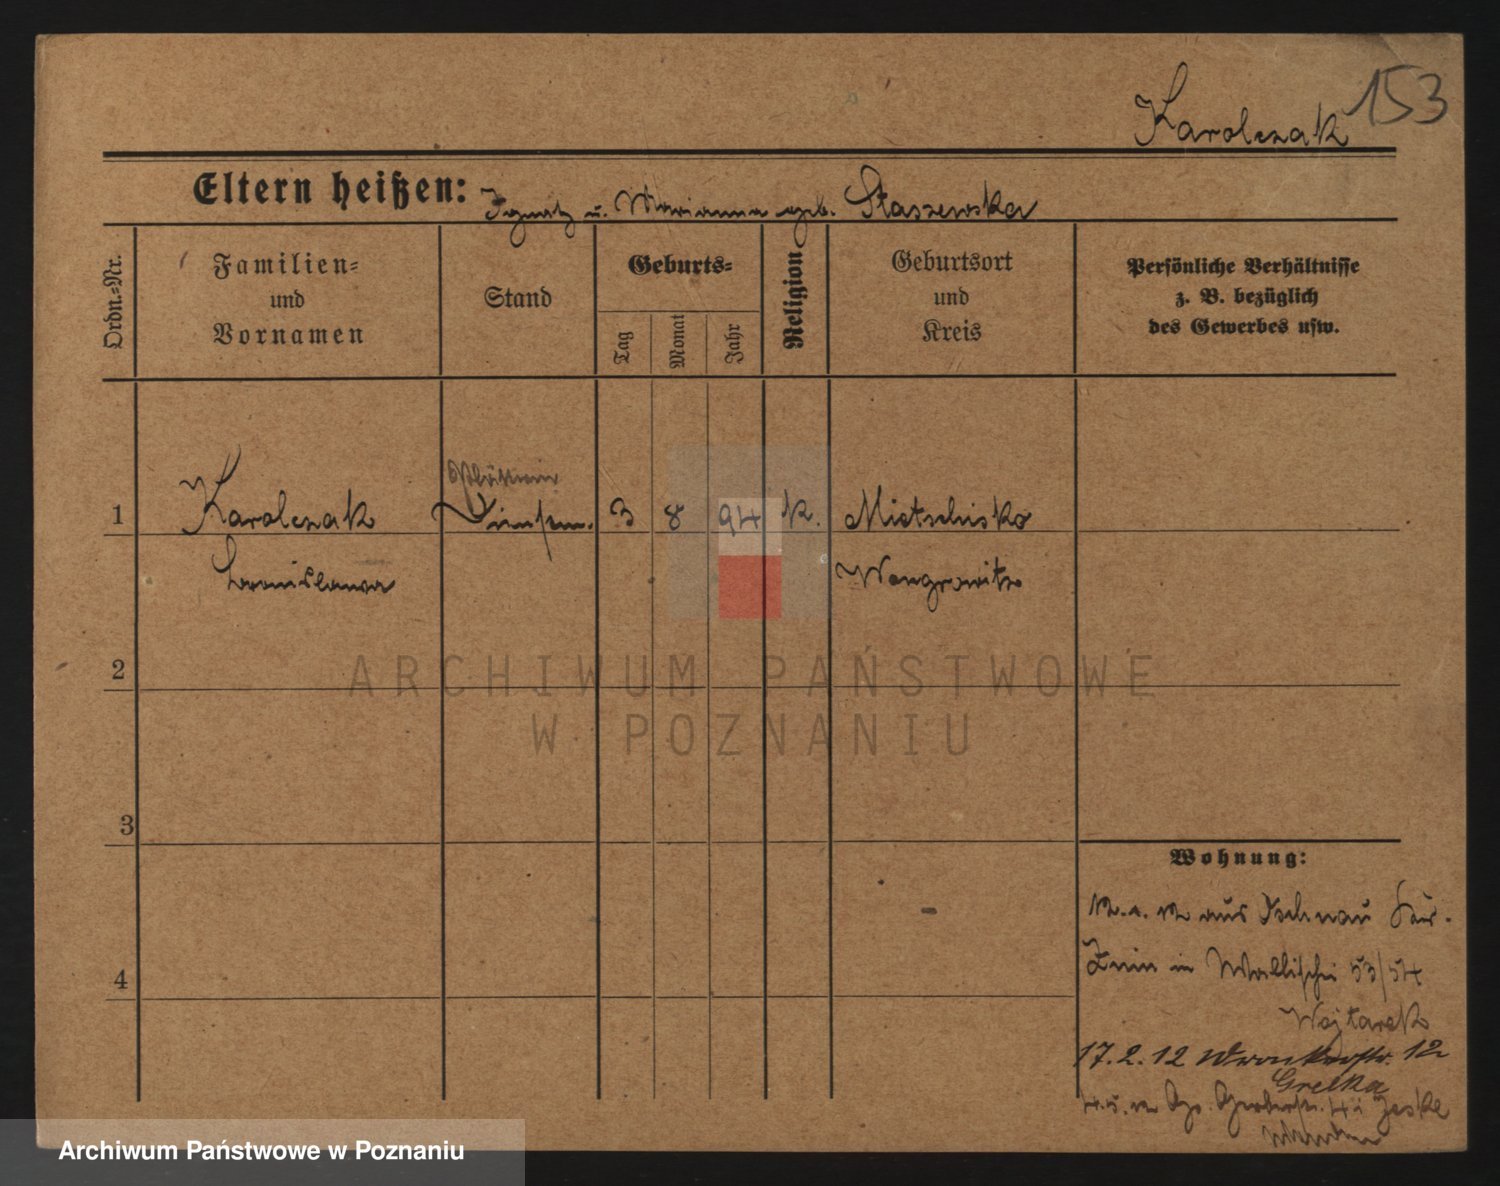 153
Karolczak
Eltern heißen: Ignatz u. Marianna geb. Staszewska
Ordn.-Nr.
Familien-
und
Vornamen
Stand
Geburts-
Tag
Monat
Jahr
Religion
Geburtsort
und
Kreis
Persönliche Verhältnisse
z. B. bezüglich
des Gewerbes usw.
Plätterin
1 Karolczak 3 8 94 k. Mietschisko
Wongrowitz
2
ARCHIWUM PAŃSTWOWE
W POZNANIU
3
Wohnung:
aus
4
Znin in Wallischei 53/54
Wojtarek
17.2.12 Wronkerstr. 12
Grelka
Jeske
Archiwum Państwowe w Poznaniu